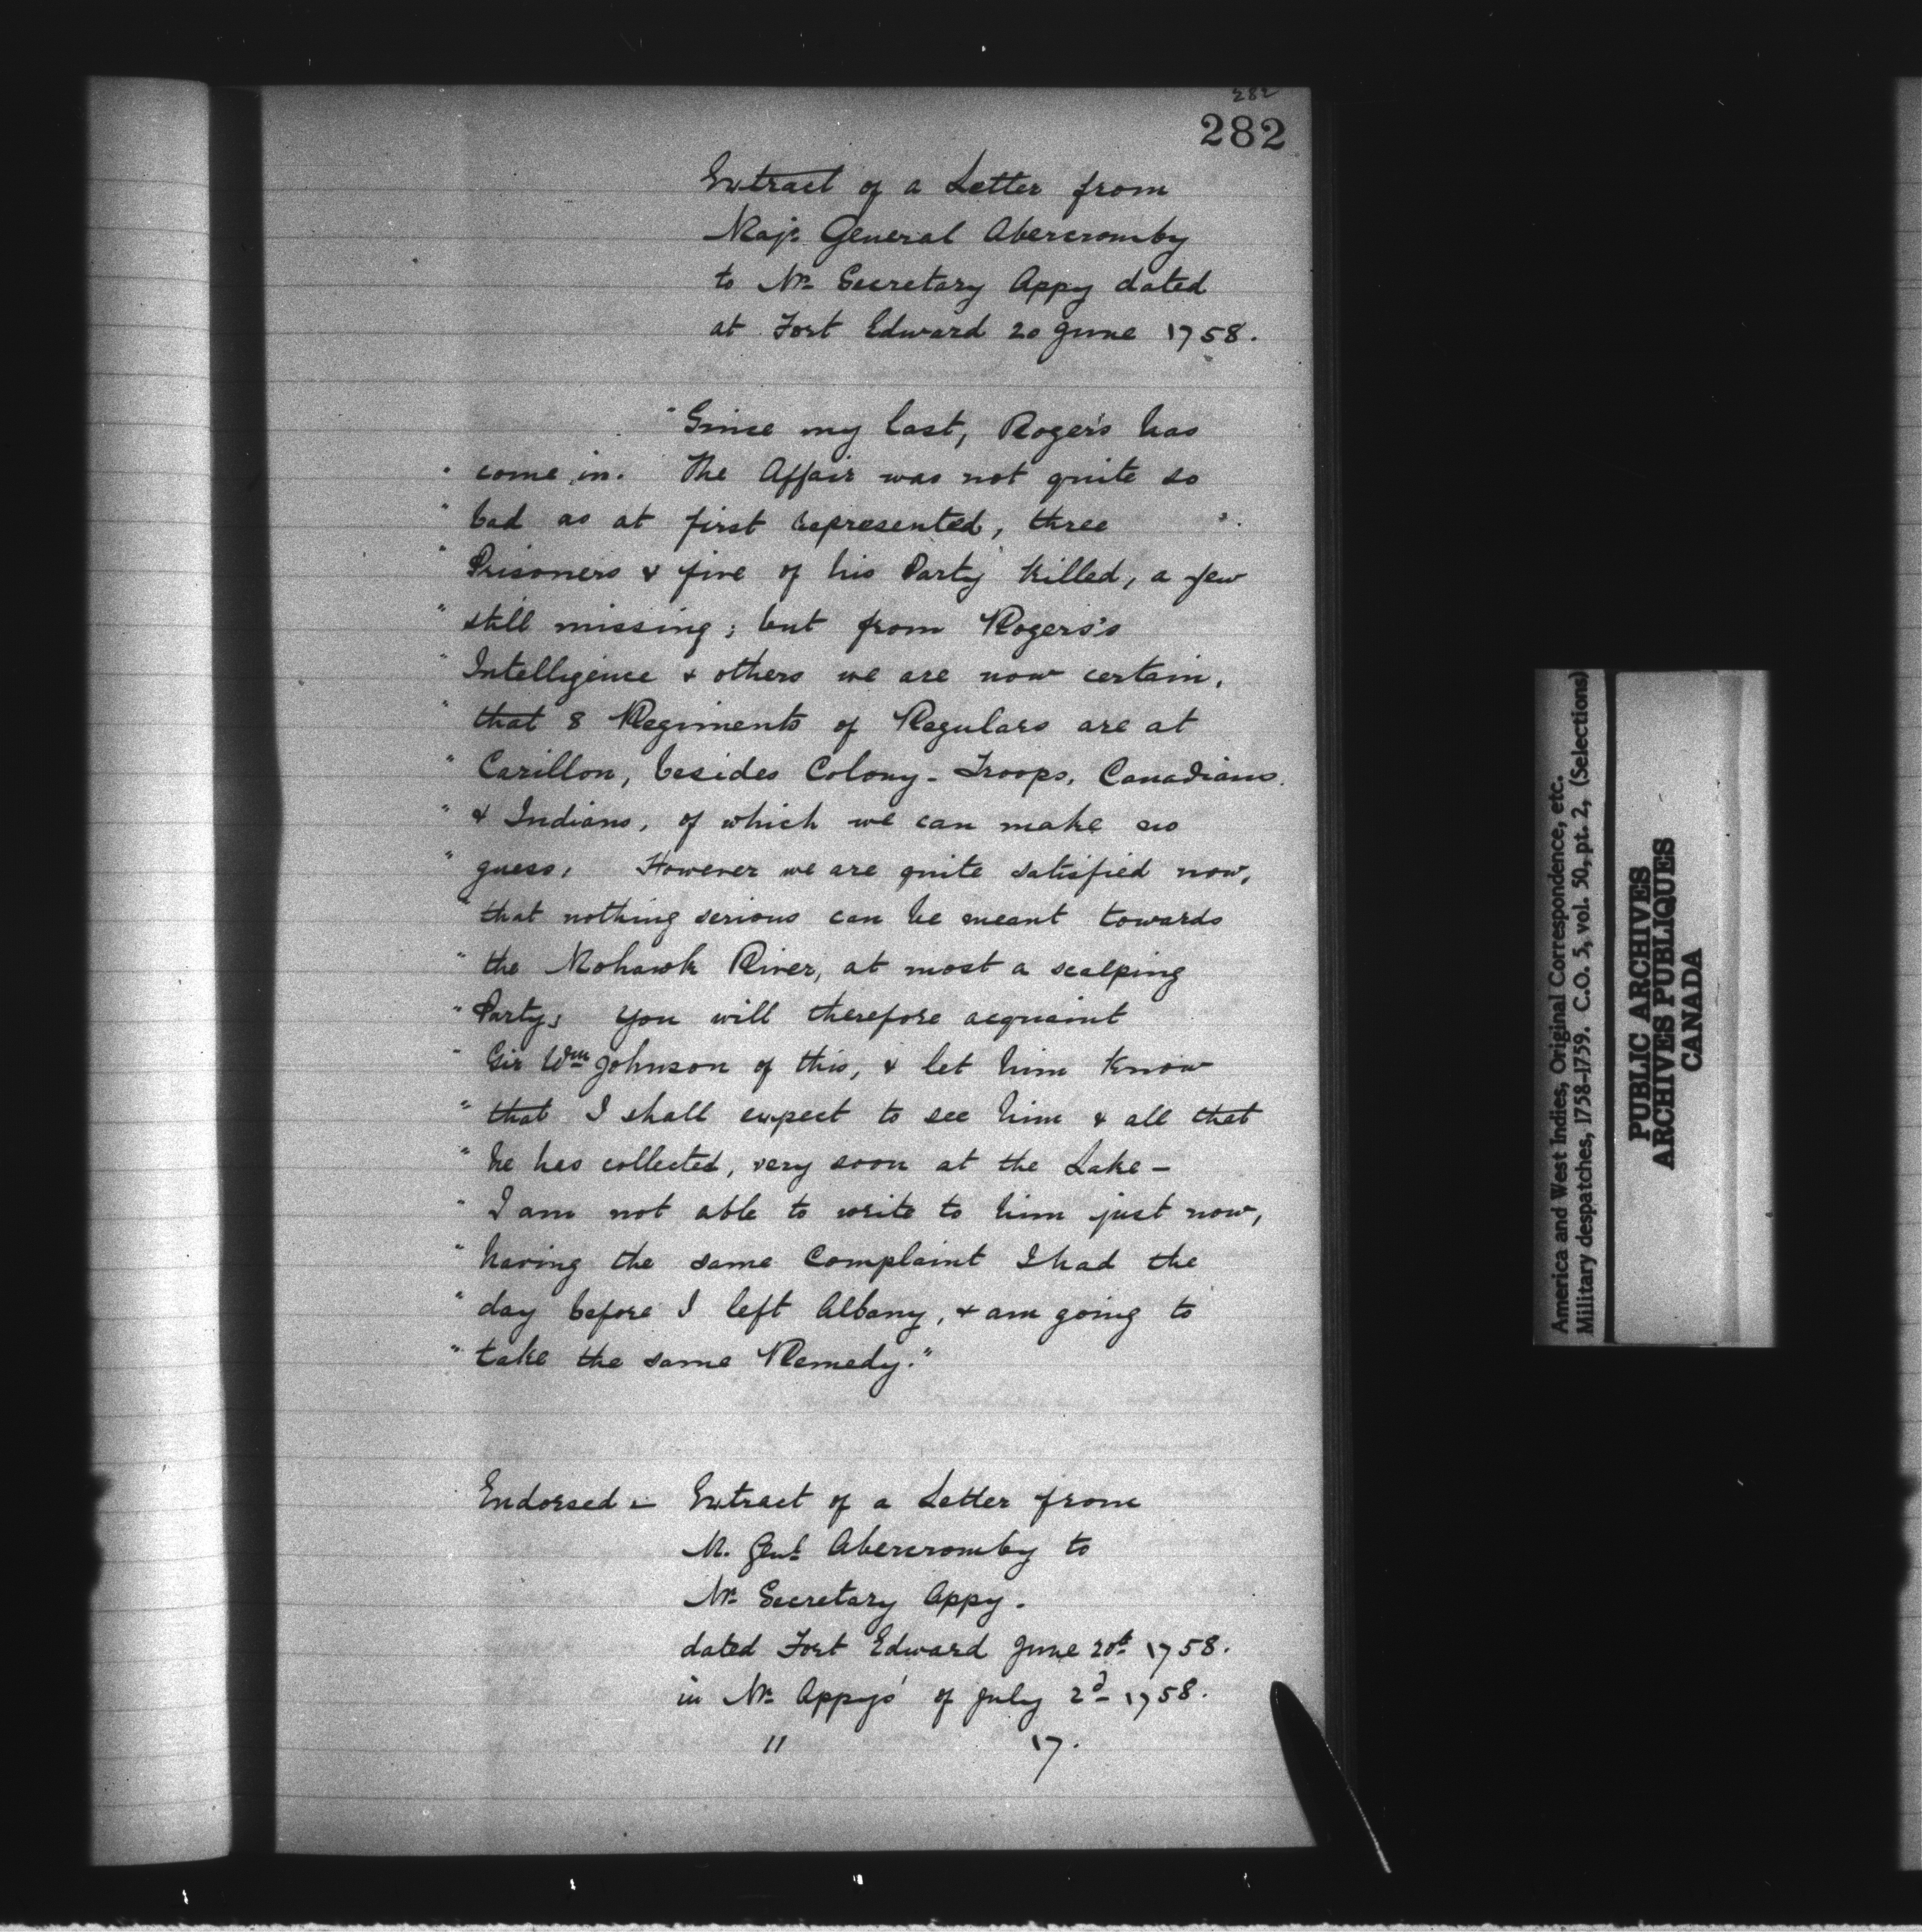 282
282
Extract of a Letter from
Majr. General Abercromby
to Mr. Secretary Appy dated
at Fort Edward 20 June 1758.
"Since my last, Roger's has
" come in. The Affair was not quite so
" bad as at first represented, three
" Prisoners & five of his Party killed, a few
" still missing; but from Rogers's
" Intelligence & others we are now certain,
" that 8 Regiments of Regulars are at
" Carillon, besides Colony-Troops, Canadians
" & Indians, of which we can make no
" guess; However we are quite satisfied now,
" that nothing serious can be meant towards
" the Mohawk River, at most a scalping
" Party; You will therefore acquaint
" Sir Wm Johnson of this, & let him know
" that I shall expect to see him & all that
" he has collected, very soon at the Lake –
" I am not able to write to him just now,
" having the same Complaint I had the
" day before I left Albany, & am going to
" take the same Remedy."
Endorsed – Extract of a Letter from
M. Genl Abercromby to
Mr. Secretary Appy.
dated Fort Edward June 20th 1758.
in Mr. Appys' of July 2d 1758.
" 17.
America and West Indies, Original Correspondence, etc.
Military despatches, 1758-1759. C.O. 5, vol. 50, pt. 2, (Selections)
PUBLIC ARCHIVES
ARCHIVES PUBLIQUES
CANADA